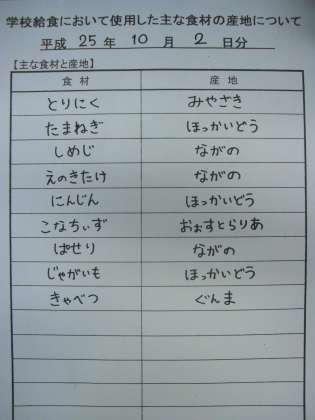 学校給食において使用した主な食材の産地について
平成 25 年 10 月 2 日分
【主な食材と産地】
食材 産地
とりにく みやざき
たまねぎ ほっかいどう
しめじ ながの
えのきたけ ながの
にんじん ほっかいどう
こなちぃず おぉすとらりあ
ぱせり ながの
じゃがいも ほっかいどう
きゃべつ ぐんま